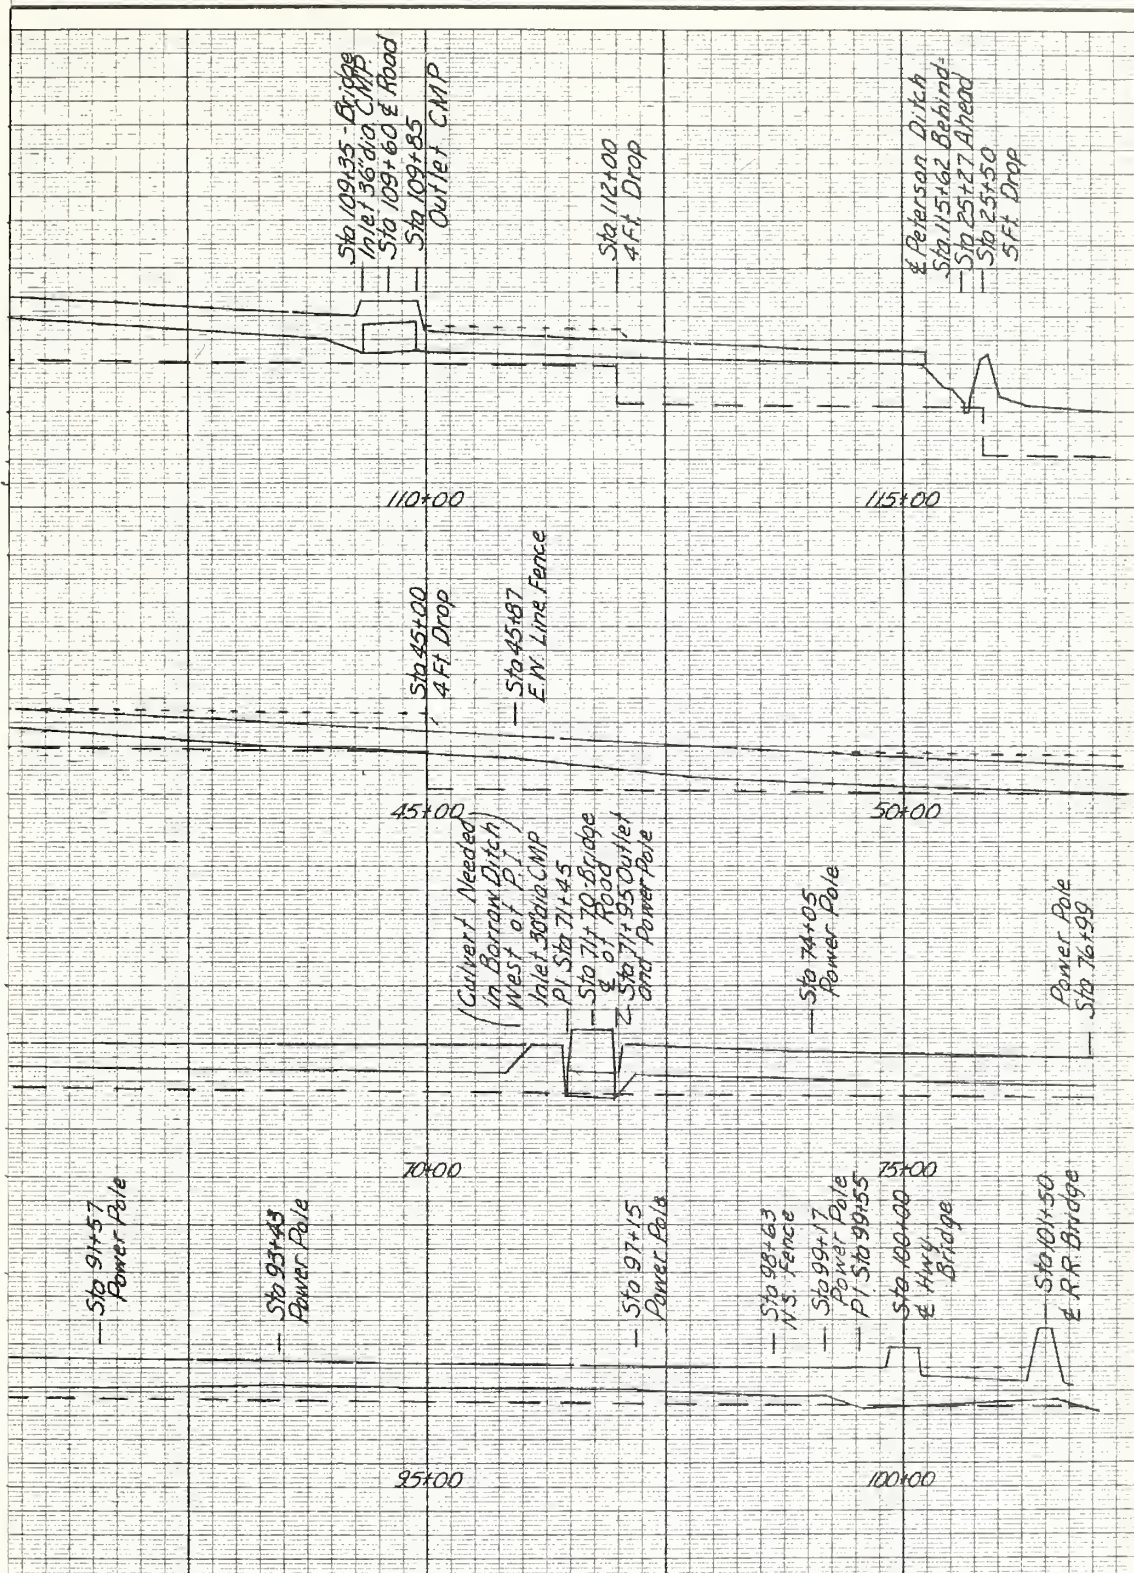 Sta 109+35 - Bridge
Inlet 36" dia. CMP
Sta 109+60 ℄ Road
Sta 109+85
Outlet CMP
Sta 112+00
4 Ft. Drop
℄ Peterson Ditch
Sta. 115+62 Behind=
Sta 25+27 Ahead
Sta 25+50
5 Ft. Drop
110+00
115+00
Sta 45+00
4 Ft. Drop
Sta 45+87
E.W. Line Fence
45+00
50+00
(Culvert Needed
in Borrow Ditch
West of P.I.)
Inlet 30" dia. CMP
PI Sta 71+45
Sta 71+70-Bridge
℄ of Road
Sta 71+95 Outlet
and Power Pole
Sta 74+05
Power Pole
Power Pole
Sta 76+99
70+00
75+00
Sta 91+57
Power Pole
Sta 93+43
Power Pole
Sta 97+15
Power Pole
Sta 98+63
N.S. Fence
Sta 99+17
Power Pole
PI Sta 99+55
Sta 100+00
℄ Hwy.
Bridge
Sta 101+50
℄ R.R. Bridge
95+00
100+00